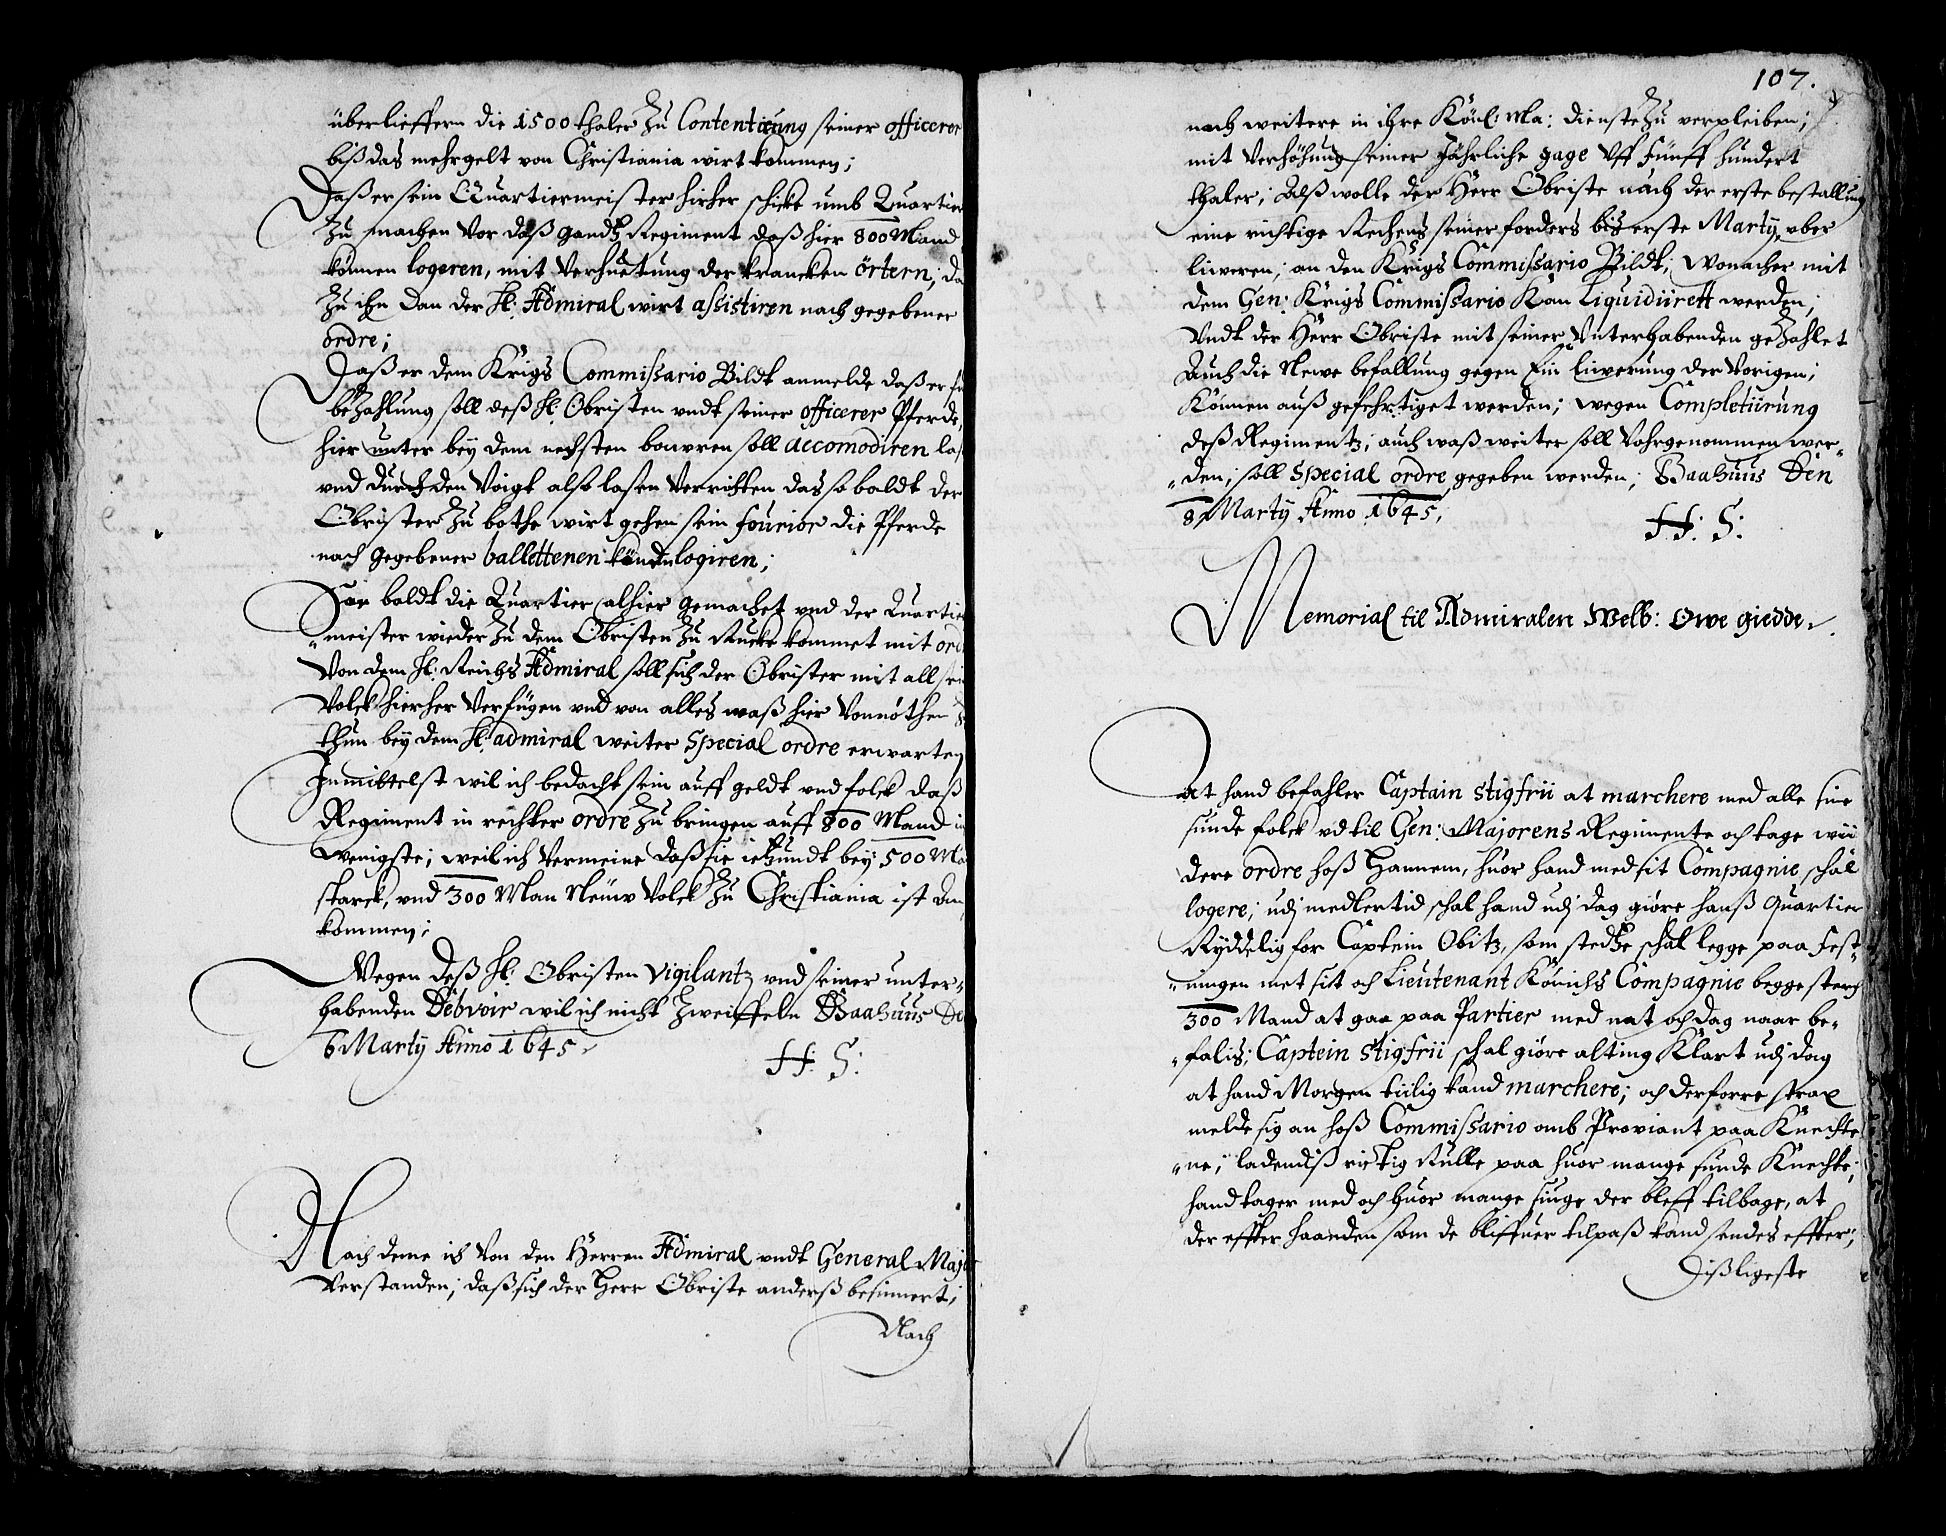 überlieffern die 1500 thaler zu Contentierung seiner officerer
biß das mehr gelt von Christiania wirt kommen;
Daß er sein Quartiermeister hirher schicke umb Quartier
zu machen vor daß gandtz Regiment daß hier 800 Mand
können logeren, mit Verhuetung der krancken örtern, da
zu ihn dan der H: Admiral wirt assistiren nach gegebener
ordre;
Daß er dem Krigs Commissario Bildt anmelde daß er für
bezahlung soll deß H: Obristen undt seiner officerer Pferde,
hier unter bey dem nechsten bouren soll accomodiren las
und durch den Voigt also lasen Verrichten das so baldt der
Obrister zu bothe wirt gehen sein fourior die Pferde
nach gegebener ballettenen könde logiren;
So baldt die Quartier alhier gemachet und der Quartier
meister wieder zu dem Obristen zu Rucke kommet mit ord
Von dem H: Reichs Admiral soll sich der Obrister mit all sein
Volck hierher Verfügen und von alles waß hier Vonnöthen
thun bey dem H: admiral weiter special ordre erwarten
Inmittelst wil ich bedacht sein auff geldt und folck daß
Regiment in rechter ordre zu bringen auff 800 Mand in
Wenigste; weil ich Vermeine daß sie ietzundt bey 500 Ma
starck, und 300 Man Neuw Volck zu Christiania ist an
kommen;
Wegen deß H: Obristen vigilantz und seiner unter„
habenden Debvoir wil ich nicht zweiffeln Baahuus De
6 Marty Anno 1645
H: S:
Nach deme ich Von den Herren Admiral undt General Major
Verstanden; daß sich der Herr Obriste anderß besinnert;
Nach
107.
noch weitere in ihre Kön: Ma: dienste zu verpleiben;
mit Verhöhung seiner Jährliche gage Uff fünff hundert
thaler; Alß wolle der Herr Obriste nach der erste bestallung
eine richtige Rechens seiner forders bis erste Marty, uber
liveren; an den Krigs Commissario Bildt; wonacher mit
dem Gen: Krigs Commissario Kan Liquidiirett werden;
Undt der Herr Obriste mit seiner Unterhabenden gezahlet
Auch die Newe befallung gegen Ein liverung der Vorigen;
Können auß gefehrtiget werden; wegen Completiirung
deß Regimentz; auch waß weiter soll Vohrgenommen wer„
„den; soll special ordre gegeben werden; Baahuus Den
8 Marty Anno 1645,
H: S:
Memorial til Admiralen Welb: Owe giedde.
At hand befahler Captain Stigfrii at marchere med alle sine
sunde folck ud til Gen: Majorens Regimente och tage wii
dere ordre hoß Hannem, huor hand med sit Compagnie schal
logere; udj medlertid schal hand udj dag giöre hanß Quartier
Ryddelig for Captein Obitz, som stedtze schal legge paa Fest„
„ningen met sit och Lieutenant Könichs Compagnie begge sterch
300 Mand at gaa paa Partier med nat och dag naar be„
„falis; Captein Stigfrii schal giöre alting Klart udj dag
at hand Morgen tiilig kand marchere; och derforre strax
melde sig an hoß Commissario omb Proviant paa Knechte
„ne; ladendiß richtig Rulle paa huor mange sunde Knechte;
hand tager med och huor mange siuge der bleff tilbage, at
der effter haanden som de bliffuer tilpaß kand sendes effter;
Dißligeste